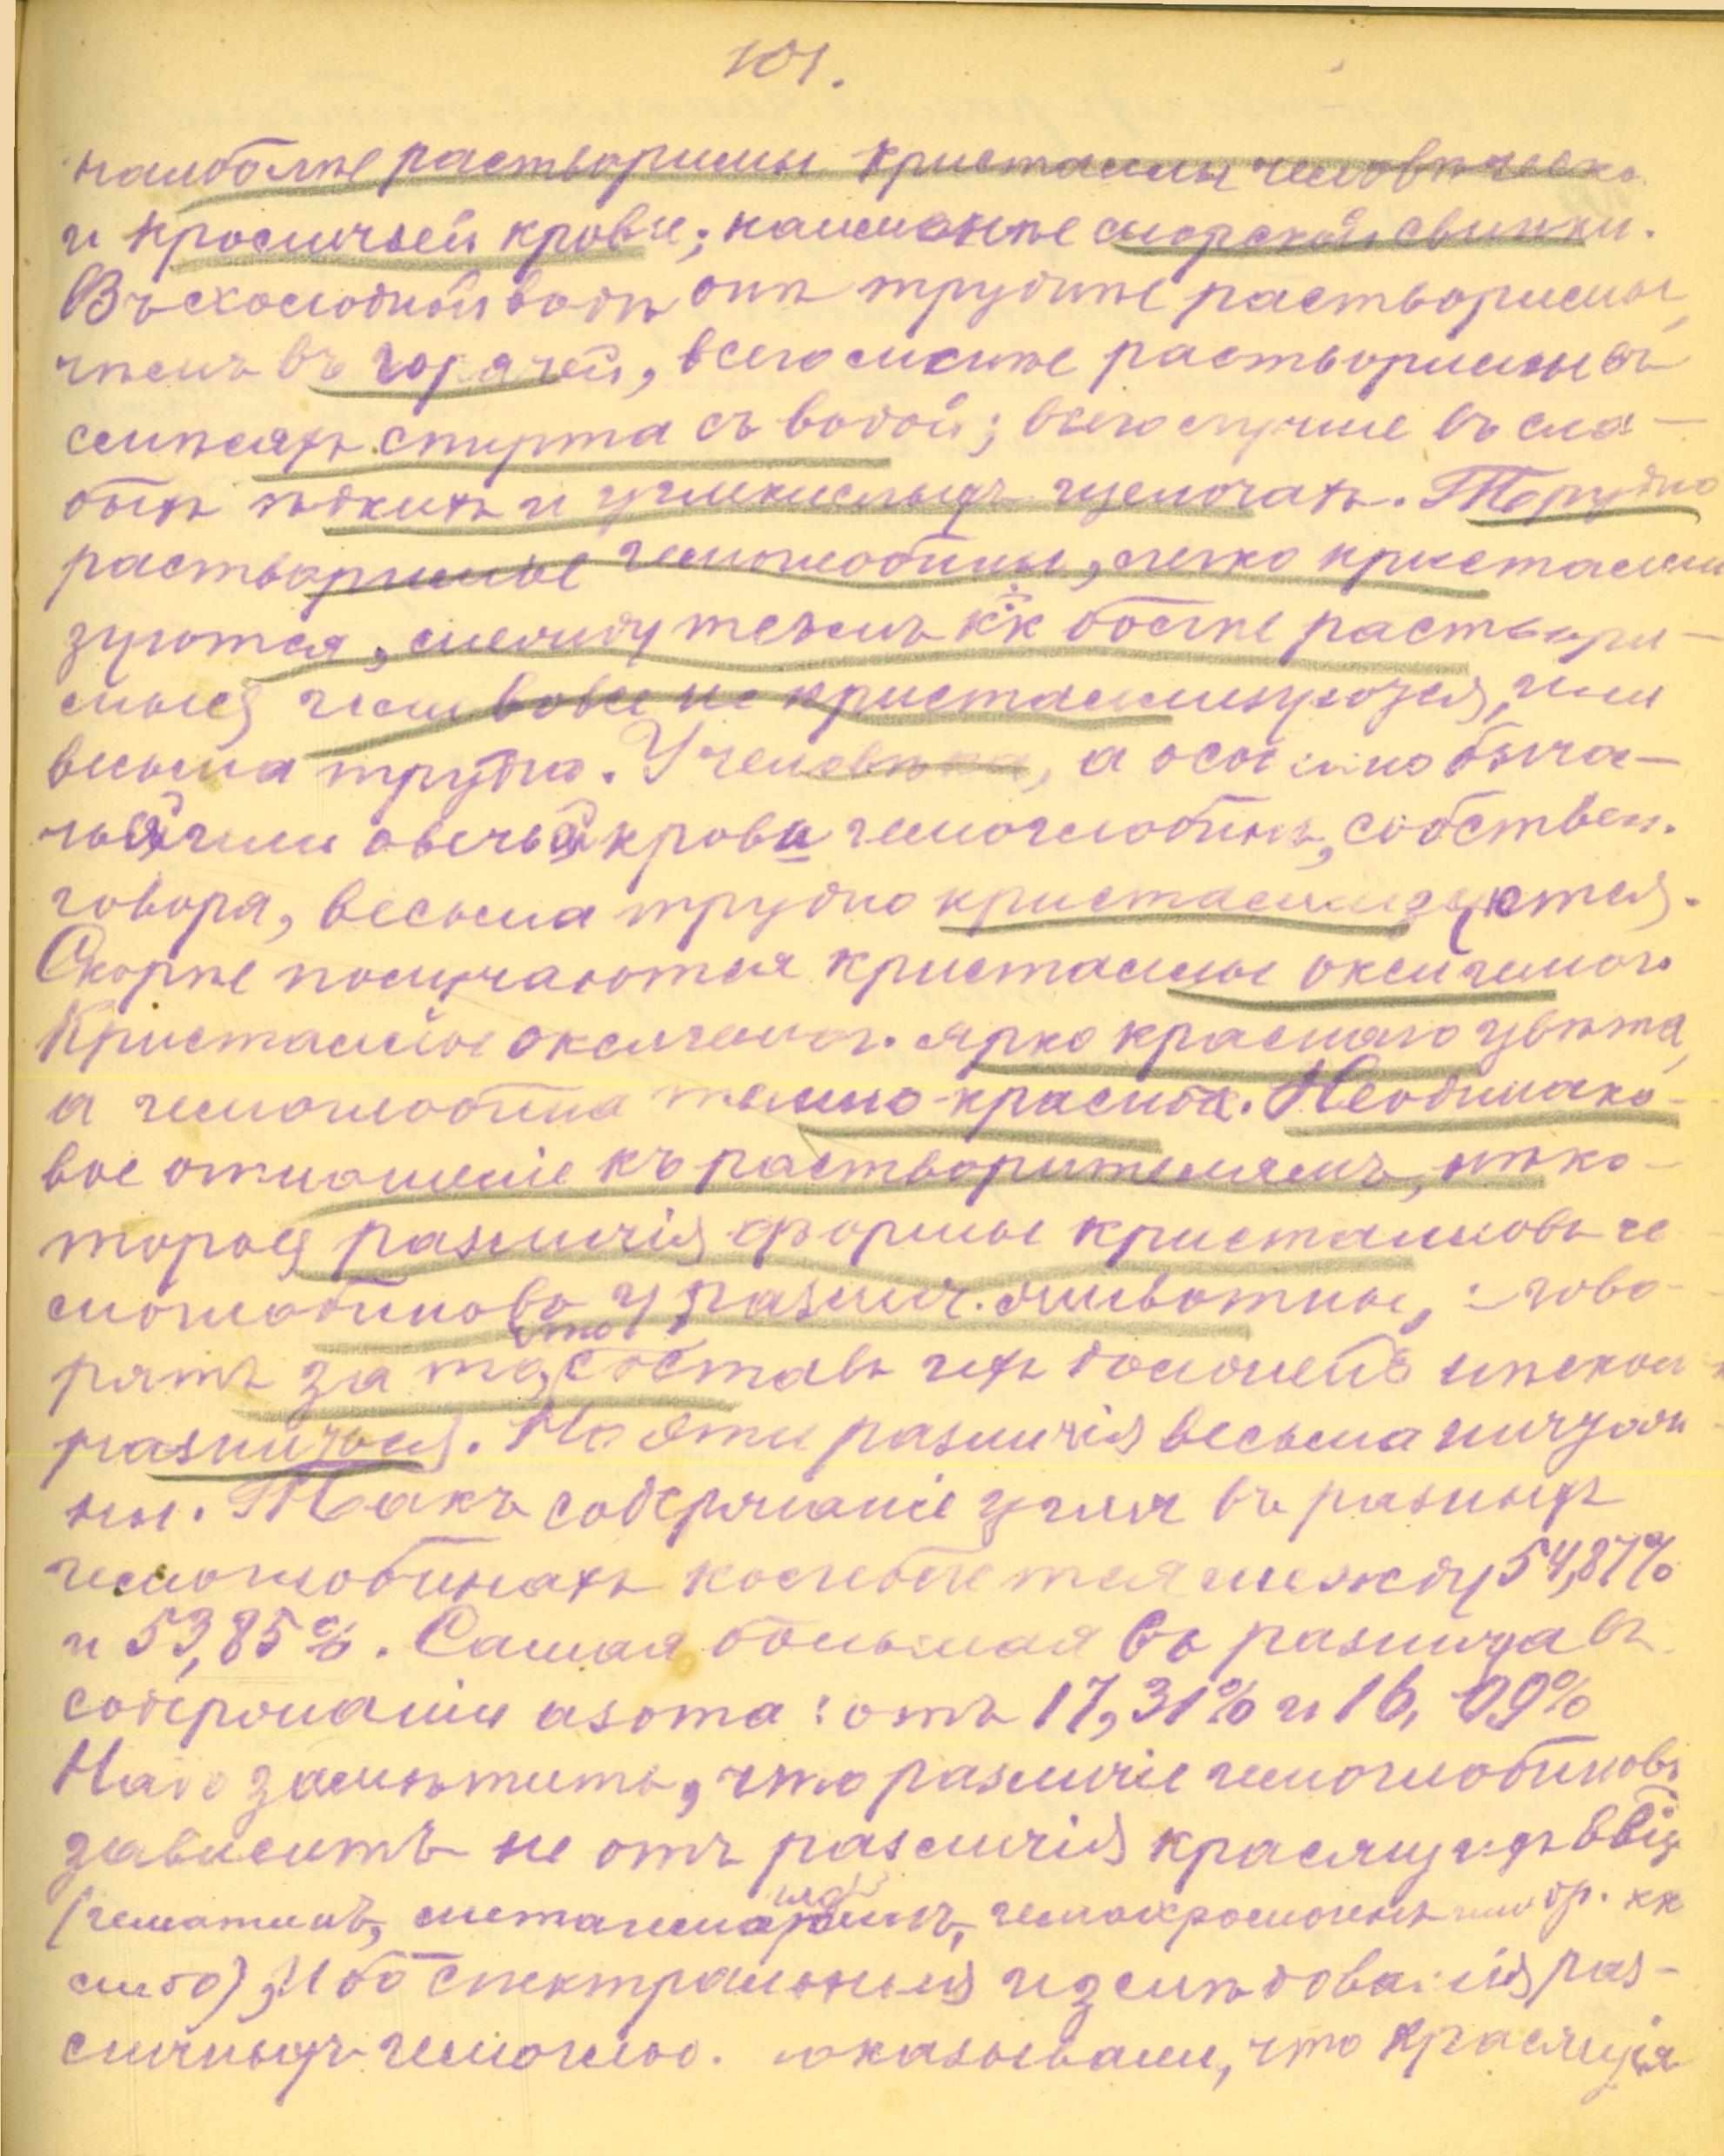 101.
наиболѣе растворимы кристаллы человѣческо
и кроличьей крови; наименѣе морской свинки.
Въ холодной водѣ онѣ труднѣе растворимы,
чѣмъ въ горячей, всего менѣе растворимы въ
смѣсяхъ спирта съ водой; всего лучше въ сла-
быхъ ѣдкихъ и углекислыхъ щелочахъ. Трудно
растворимые гемоглобины, легко кристалли
зуются, между тѣмъ кк болѣе раствори-
мыя или вовсе не кристаллизуются, или
весьма трудно. У человѣка, а особенно быча-
чьей или овечьей крови гемоглобинъ, собствен.
говоря, весьма трудно кристаллизуются.
Скорѣе получаются кристаллы оксигемог.
Кристаллы оксигемог. ярко краснаго цвѣта,
а гемоглобина темно-красна. Неодинако-
вое отношеніе къ растворителямъ, нѣко-
торыя различія формы кристалловъ ге
моглобиновъ у различ. животные, - гово-
рятъ за то, что составъ ихъ долженъ нѣскол
различься. Но эти различія весьма ничтож
ны. Такъ содержаніе угля въ разныхъ
гемоглобинахъ колеблется между 54,87%
и 53,85%. Самая большая въ разница въ
содержаніи азота: отъ 17,31% и 16,09%
Надо замѣтить, что различіе гемоглобиновъ
зависитъ не отъ различія красящихъ вещ
(гематинъ, метагемо гемохромогенъ или др. кк
либо); Ибо спектральныя изслѣдованія раз-
личныхъ гемогло. показывали, что красящія